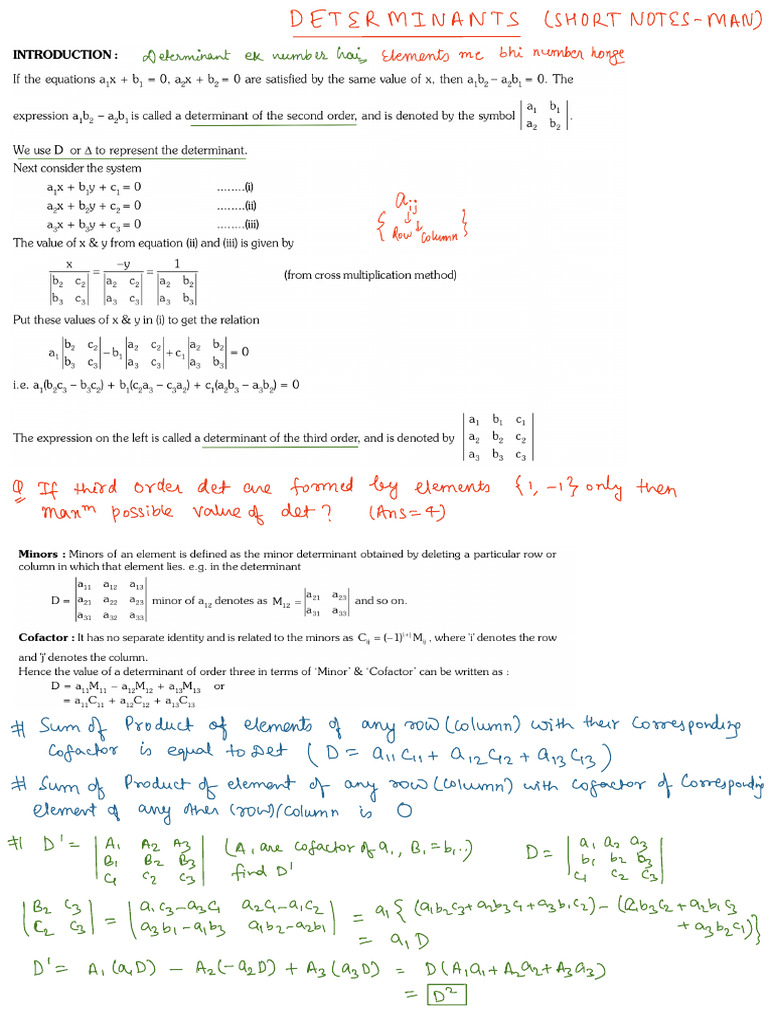 DETERMINANTS (SHORT NOTES-MAN)
INTRODUCTION : Determinant ek number hai, Elements me bhi number honge
If the equations a₁x + b₁ = 0, a₂x + b₂ = 0 are satisfied by the same value of x, then a₁b₂ − a₂b₁ = 0. The
expression a₁b₂ − a₂b₁ is called a determinant of the second order, and is denoted by the symbol |a₁ b₁|
|a₂ b₂|.
We use D or Δ to represent the determinant.
Next consider the system
a₁x + b₁y + c₁ = 0 ........(i)
a₂x + b₂y + c₂ = 0 ........(ii)
a₃x + b₃y + c₃ = 0 ........(iii)
aᵢⱼ
{ Row Column }
The value of x & y from equation (ii) and (iii) is given by
x −y 1
|b₂ c₂| = |a₂ c₂| = |a₂ b₂| (from cross multiplication method)
|b₃ c₃| |a₃ c₃| |a₃ b₃|
Put these values of x & y in (i) to get the relation
a₁ |b₂ c₂| − b₁ |a₂ c₂| + c₁ |a₂ b₂| = 0
|b₃ c₃| |a₃ c₃| |a₃ b₃|
i.e. a₁(b₂c₃ − b₃c₂) + b₁(c₂a₃ − c₃a₂) + c₁(a₂b₃ − a₃b₂) = 0
|a₁ b₁ c₁|
The expression on the left is called a determinant of the third order, and is denoted by |a₂ b₂ c₂|
|a₃ b₃ c₃|
Q If third order det are formed by elements {1, −1} only then
maxᵐ possible value of det? (Ans=4)
Minors : Minors of an element is defined as the minor determinant obtained by deleting a particular row or
column in which that element lies. e.g. in the determinant
|a₁₁ a₁₂ a₁₃|
D = |a₂₁ a₂₂ a₂₃| minor of a₁₂ denotes as M₁₂ = |a₂₁ a₂₃| and so on.
|a₃₁ a₃₂ a₃₃| |a₃₁ a₃₃|
Cofactor : It has no separate identity and is related to the minors as Cᵢⱼ = (−1)ⁱ⁺ʲ Mᵢⱼ , where 'i' denotes the row
and 'j' denotes the column.
Hence the value of a determinant of order three in terms of 'Minor' & 'Cofactor' can be written as :
D = a₁₁M₁₁ − a₁₂M₁₂ + a₁₃M₁₃ or
= a₁₁C₁₁ + a₁₂C₁₂ + a₁₃C₁₃
# Sum of Product of elements of any row (column) with their corresponding
cofactor is equal to Det (D = a₁₁C₁₁ + a₁₂C₁₂ + a₁₃C₁₃)
# Sum of Product of element of any row (column) with cofactor of corresponding
element of any other (row)/column is 0
# D' = |A₁ A₂ A₃| (A₁ are cofactor of a₁, B₁=b₁..) D = |a₁ a₂ a₃|
|B₁ B₂ B₃| find D' |b₁ b₂ b₃|
|C₁ C₂ C₃| |c₁ c₂ c₃|
|B₂ C₃| = |a₁c₃−a₃c₁ a₂c₁−a₁c₂| = a₁{(a₁b₂c₃+a₂b₃c₁+a₃b₁c₂)−(a₁b₃c₂+a₂b₁c₃
|C₂ C₃| |a₃b₁−a₁b₃ a₁b₂−a₂b₁| + a₃b₂c₁)}
= a₁D
D' = A₁(a₁D) − A₂(−a₂D) + A₃(a₃D) = D(A₁a₁+A₂a₂+A₃a₃)
= D²